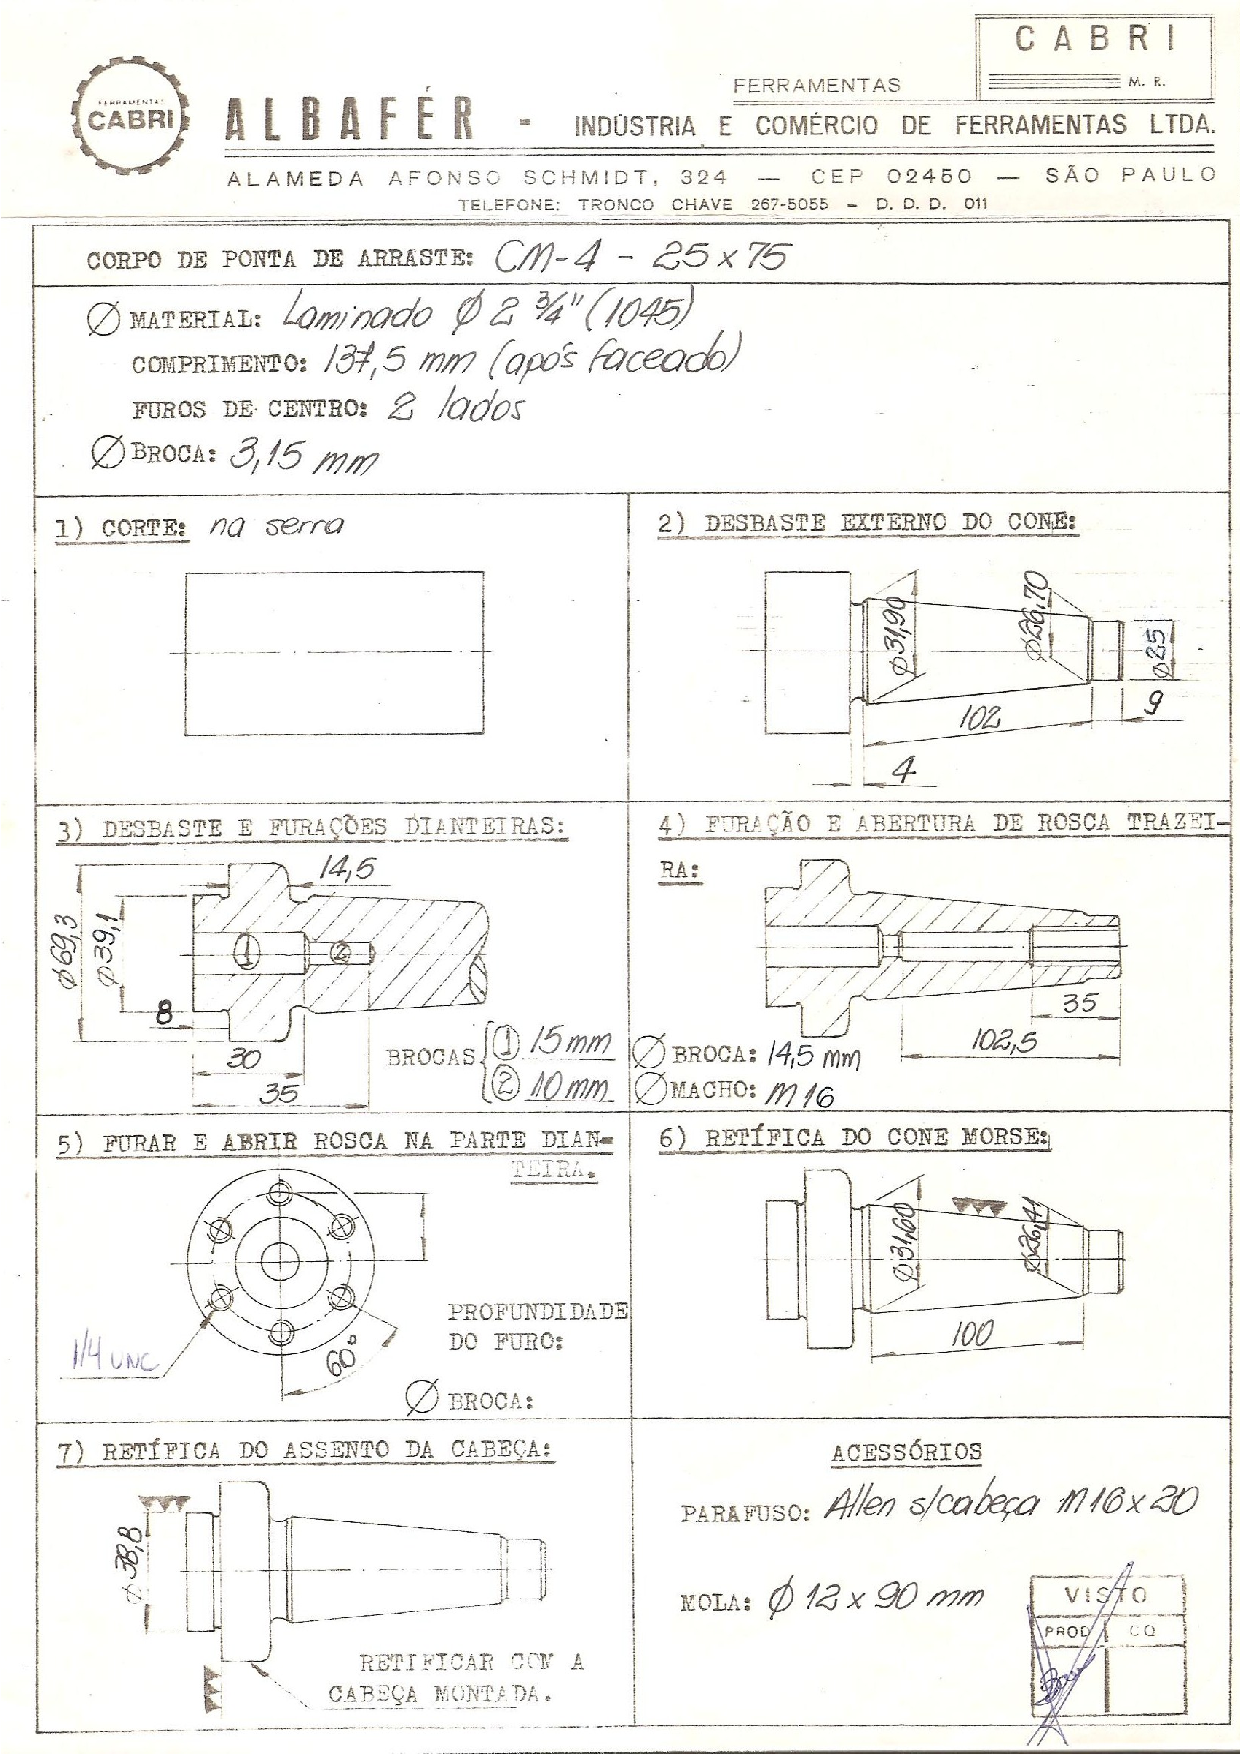 CABRI
M. R.
FERRAMENTAS
CABRI
FERRAMENTAS
ALBAFÉR - INDÚSTRIA E COMÉRCIO DE FERRAMENTAS LTDA.
ALAMEDA AFONSO SCHMIDT, 324 — CEP 02450 — SÃO PAULO
TELEFONE: TRONCO CHAVE 267-5055 - D. D. D. 011
CORPO DE PONTA DE ARRASTE: CM-4 - 25 x 75
Ø MATERIAL: Laminado Ø 2 3/4" (1045)
COMPRIMENTO: 137,5 mm (após faceado)
FUROS DE CENTRO: 2 lados
Ø BROCA: 3,15 mm
1) CORTE: na serra
2) DESBASTE EXTERNO DO CONE:
Ø31,90
Ø26,70
Ø25
102
9
4
3) DESBASTE E FURAÇÕES DIANTEIRAS:
14,5
Ø69,3
Ø39,1
1
2
8
30
35
BROCAS
1 15 mm
2 10 mm
4) FURAÇÃO E ABERTURA DE ROSCA TRAZEI-
RA:
35
102,5
Ø BROCA: 14,5 mm
Ø MACHO: M16
5) FURAR E ABRIR ROSCA NA PARTE DIAN-
TEIRA.
1/4 UNC
60°
PROFUNDIDADE
DO FURO:
Ø BROCA:
6) RETÍFICA DO CONE MORSE:
Ø31,60
Ø26,41
100
7) RETÍFICA DO ASSENTO DA CABEÇA:
Ø38,8
RETIFICAR COM A
CABEÇA MONTADA.
ACESSÓRIOS
PARAFUSO: Allen s/cabeça M16 x 20
MOLA: Ø 12 x 90 mm
VISTO
PROD
CQ